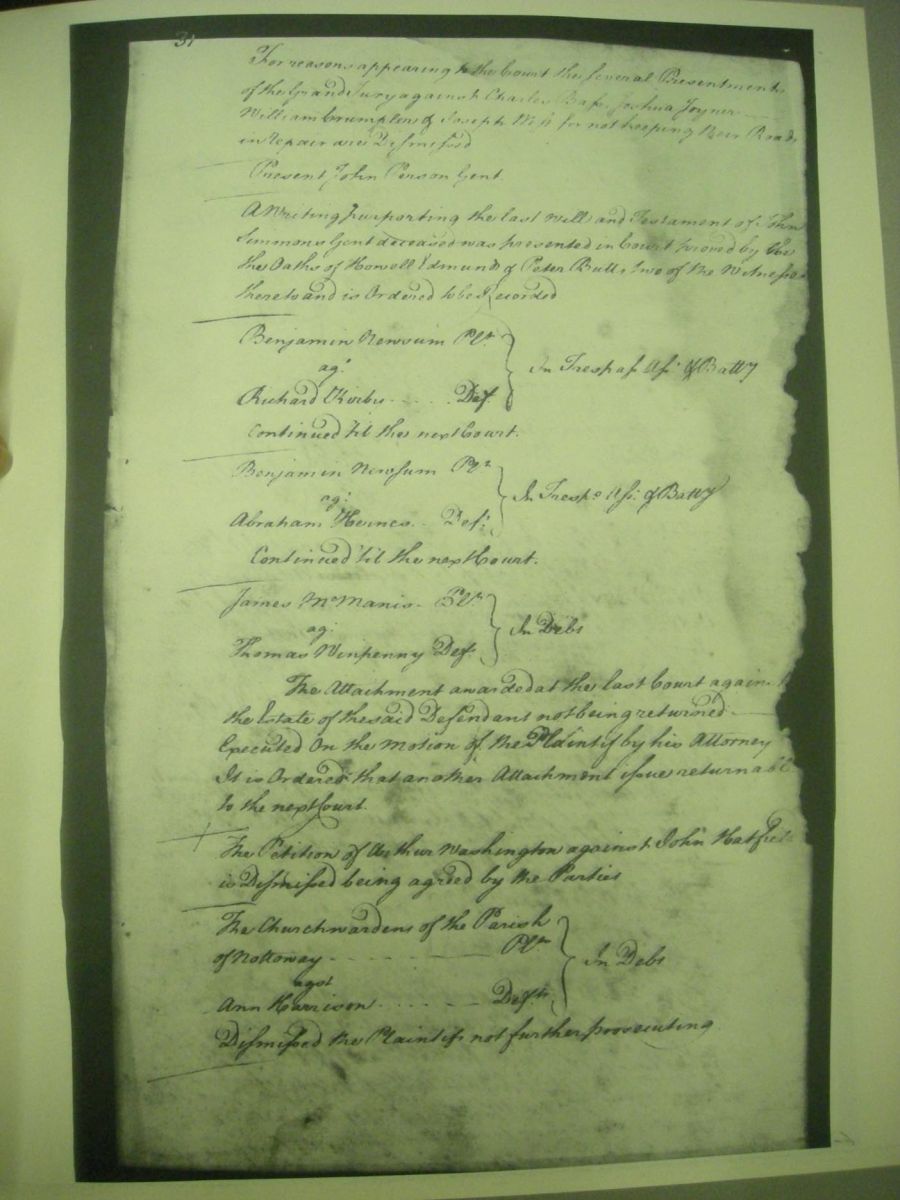 31
For reasons appearing to the Court the Several Presentments
of the Grand Jury against Charles Bass, Joshua Joyner
William Crumpler & Joseph for not keeping their Roads
in repair are Dismissed
Present John Person Gent
A Writing purporting the last Will and Testament of John
Simmons Gent deceased was presented in Court proved by
the Oaths of Howell Edmunds & Peter Butts two of the Witnesses
thereto and is Ordered to be Recorded
Benjamin Newsum Plt.
agt.
Richard Kirby Def.
In Trespass Asst. & Batty
Continued 'til the next Court.
Benjamin Newsum Plt.
agt.
Abraham Def.
In Tresps. Asst. & Batty
Continued 'til the next Court.
James McManis Plt.
agt.
Thomas Winpenny Def.
In Debt
The Attachment awarded at the last Court against
the Estate of the said Defendant not being returned
Executed On the Motion of the Plaintif by his Attorney
It is Ordered that another Attachment issue returnable
to the next Court.
The Petition of Arthur Washington against John Hatfield
is Dismissed being agreed by the Parties
The Churchwardens of the Parish
of Nottoway Plts
agst
Ann Harrison Deft
In Debt
Dismissed the Plaintifs not further prosecuting